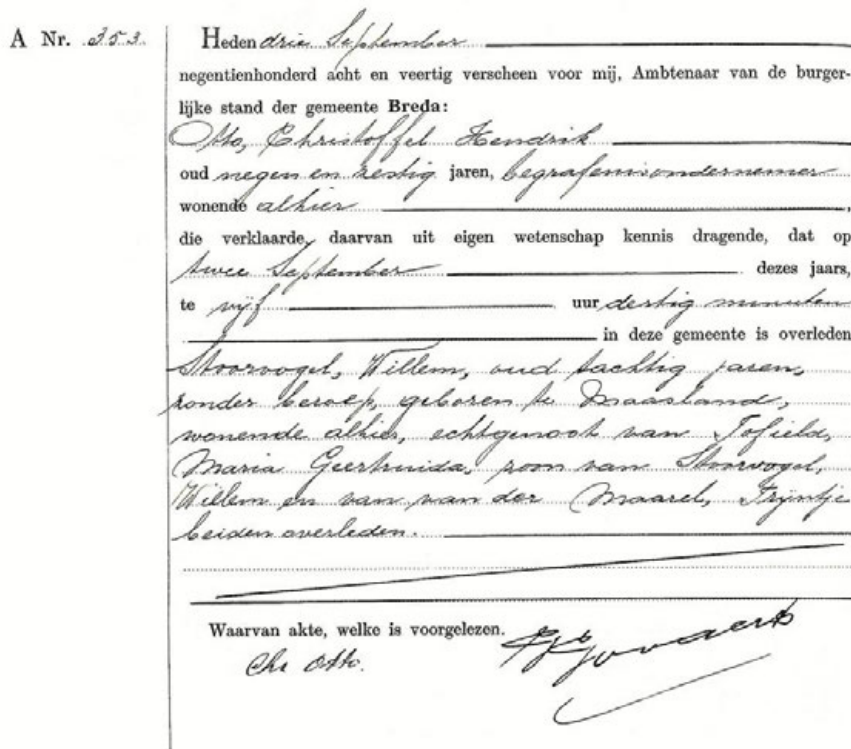 A Nr. 353.
Heden drie September
negentienhonderd acht en veertig verscheen voor mij, Ambtenaar van de burger-
lijke stand der gemeente Breda:
Otto, Christoffel Hendrik
oud negen en zestig jaren, begrafenisondernemer
wonende alhier,
die verklaarde, daarvan uit eigen wetenschap kennis dragende, dat op
twee September dezes jaars,
te vijf uur dertig minuten
in deze gemeente is overleden
Stoorvogel, Willem, oud tachtig jaren,
zonder beroep, geboren te Maasland,
wonende alhier, echtgenoot van Tofield,
Maria Geertruida, zoon van Stoorvogel,
Willem en van van der Maarel, Trijntje
beiden overleden.
Waarvan akte, welke is voorgelezen.
Chr Otto.